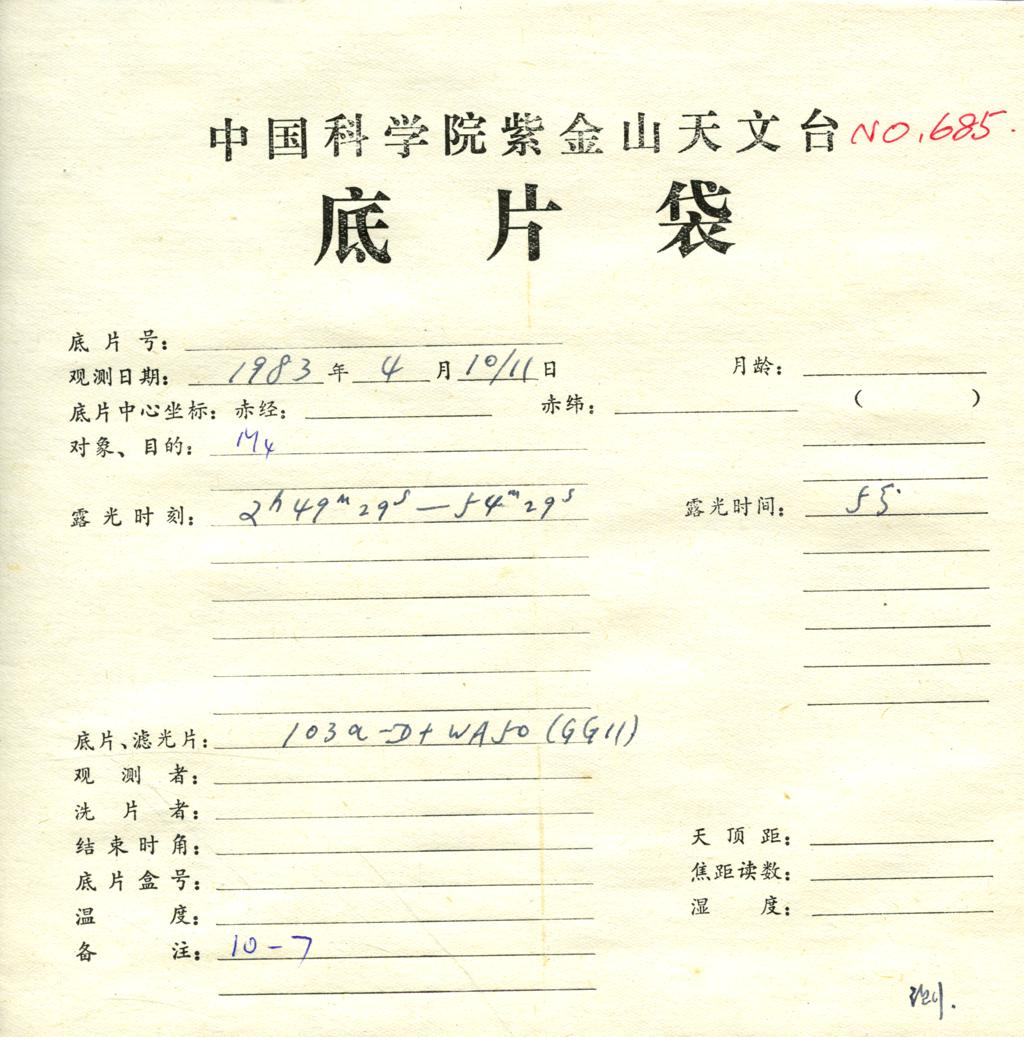 中国科学院紫金山天文台 NO.685.
底片袋
底片号：
观测日期： 1983年 4月 10/11日 月龄：
底片中心坐标：赤经： 赤纬： （ ）
对象、目的： M4
露光时刻： 2h49m29s—54m29s 露光时间： 5分
底片、滤光片： 103a-D+WA50(GG11)
观测者：
洗片者：
结束时角： 天顶距：
底片盒号： 焦距读数：
温度： 湿度：
备注： 10-7